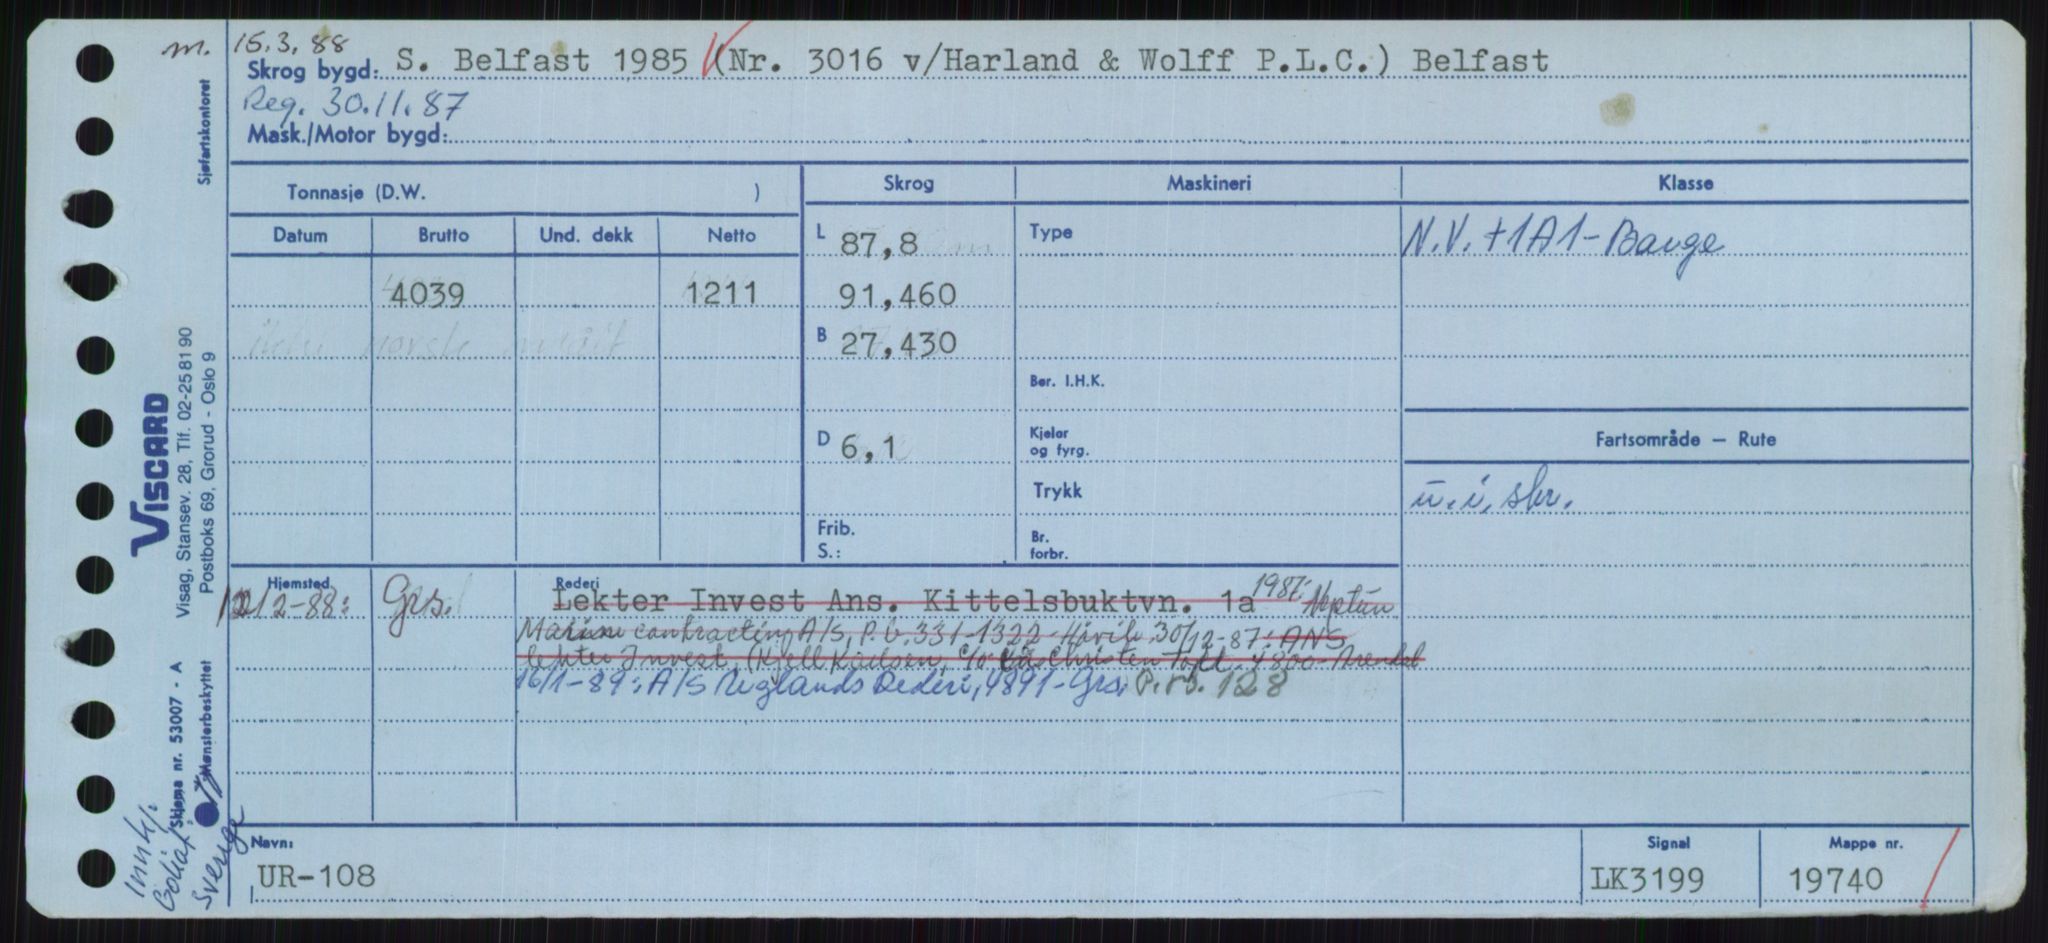 m. 15.3.88
Skrog bygd: S. Belfast 1985 (Nr. 3016 v/Harland & Wolff P.L.C.) Belfast
Reg. 30.11.87
Mask./Motor bygd:
Tonnasje (D.W. )
Skrog Maskineri Klasse
Datum Brutto Und. dekk Netto
L 87,8
Type
N.V. +1A1-Barge
4039 1211
91,460
ikke norsk målt
B 27,430
Ber. I.H.K.
D 6,1
Kjeler
og fyrg.
Fartsområde — Rute
Trykk
u.i. skr.
Frib.
S.:
Br.
forbr.
Hjemsted
Rederi
2/2-88: Grs.
Lekter Invest Ans. Kittelsbuktvn. 1a 1987: Neptun
Marine contracting A/S, P.b. 331-1322 Høvik 30/12-87: ANS
Lekter Invest, (Kjell Karlsen, c/o Christen 4800-Arendal
16/1-89: A/S Neglands Rederi, 4891-Grs. P.b. 128
Navn:
UR-108
Signal
LK3199
Mappe nr.
19740
Sjøfartskontoret
VISCARD
Visag, Stansev. 28, Tlf. 02-25 81 90
Postboks 69, Grorud - Oslo 9
Skjema nr. 53007 - A
Mønsterbeskyttet
innkj.
Goliat
Sverige